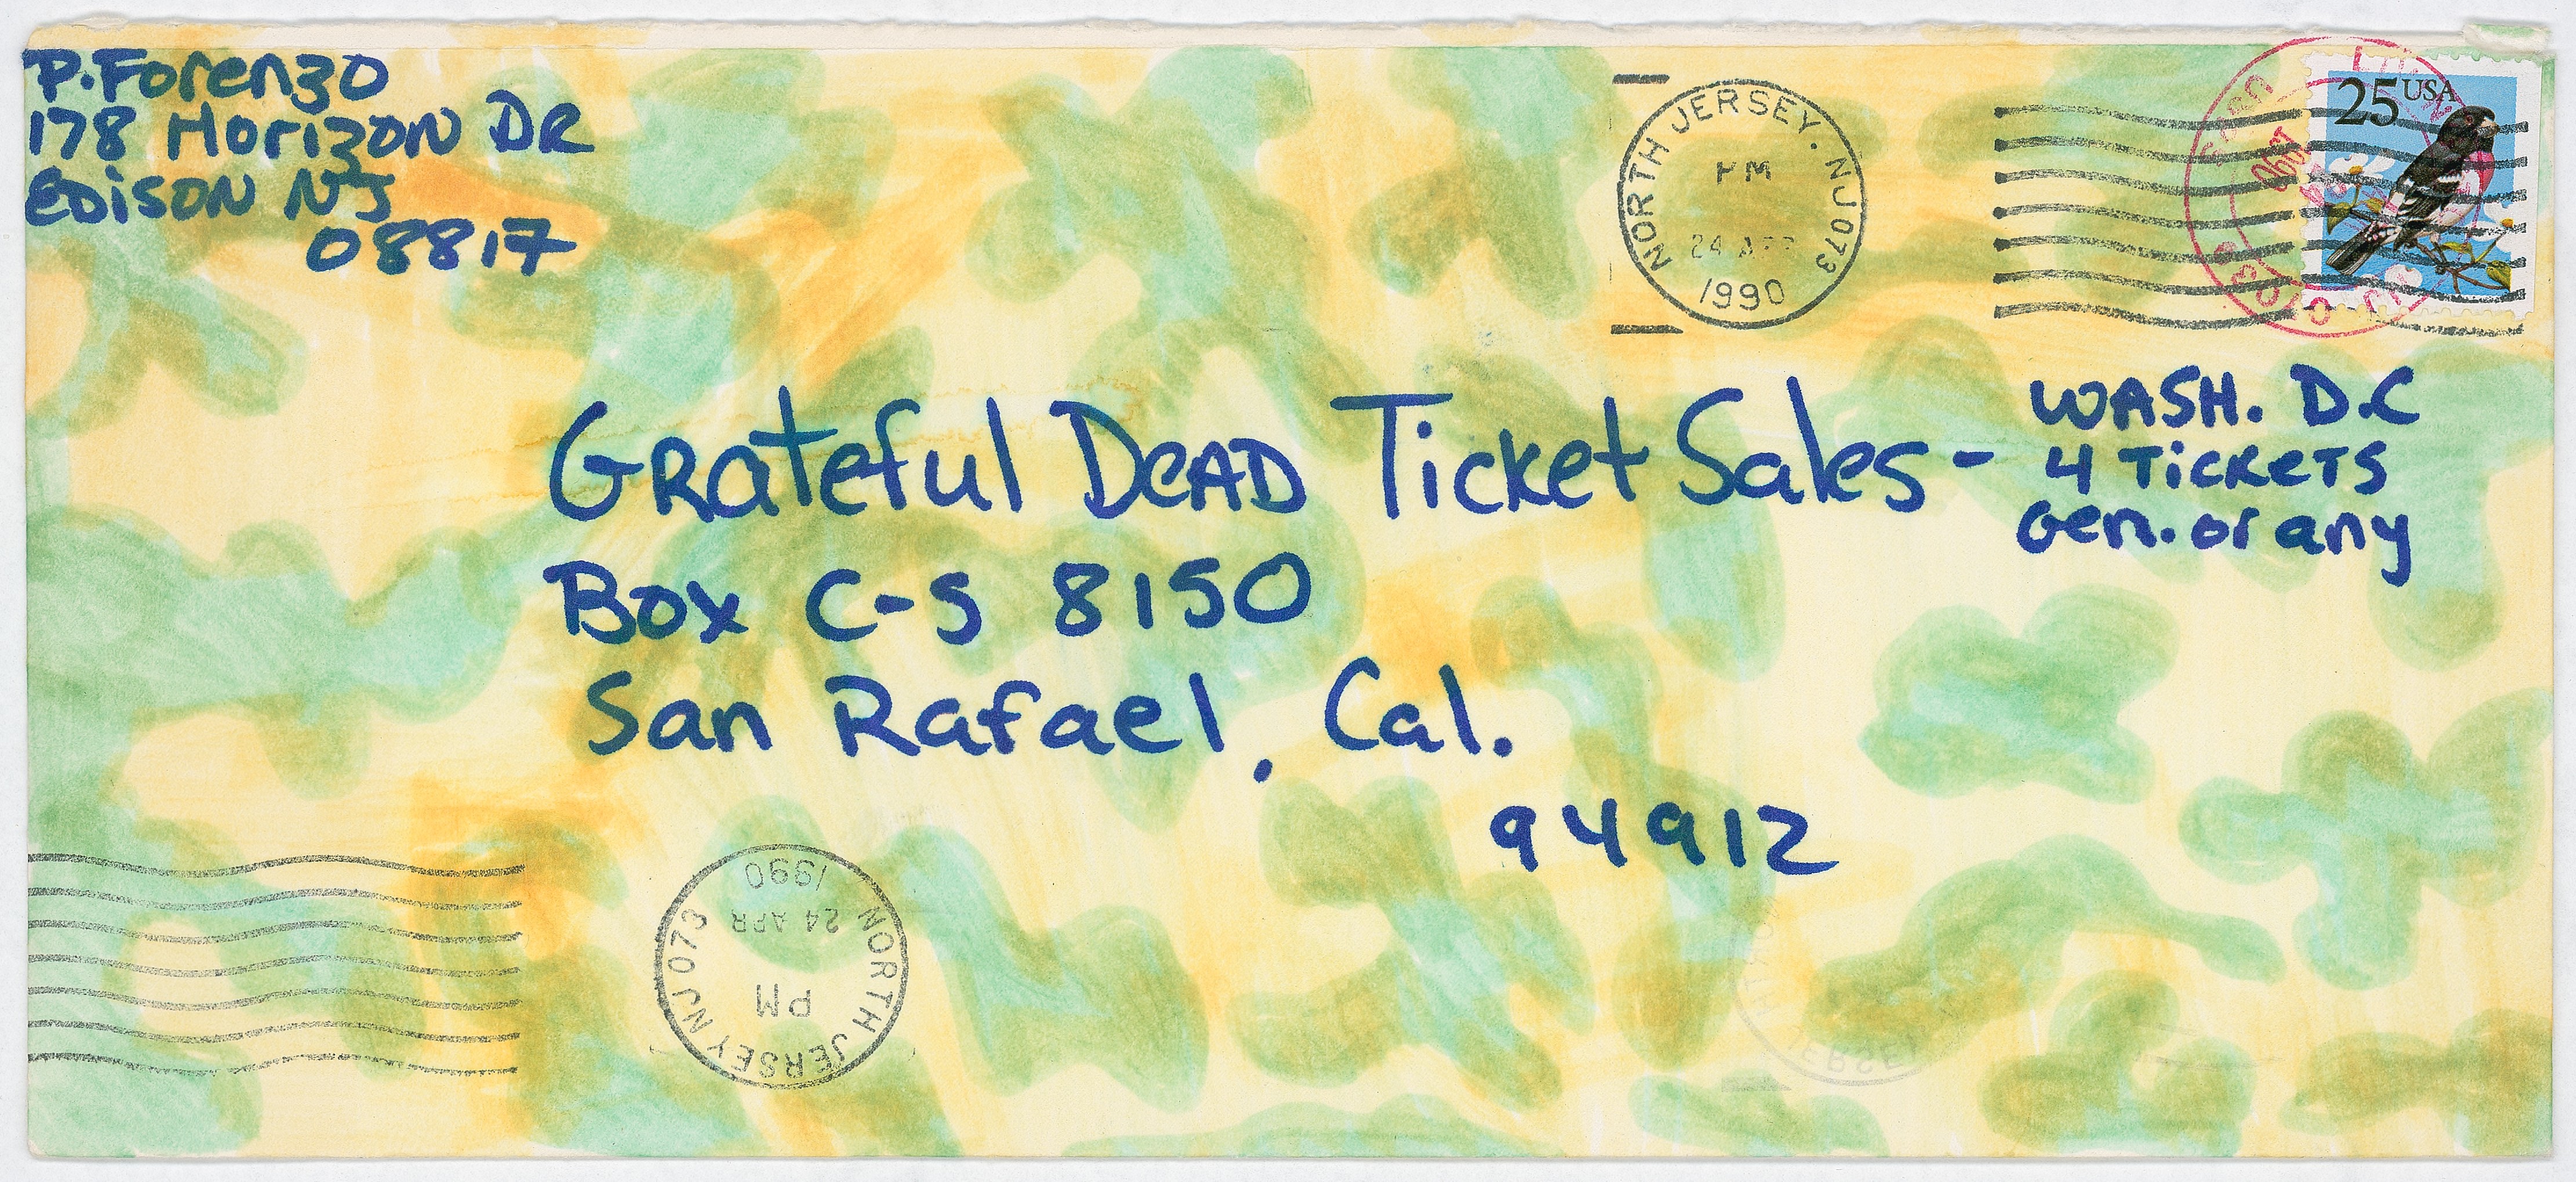 P. Forenzo
178 Horizon DR
Edison NJ
08817
NORTH JERSEY. NJ 073
PM
24 APR
1990
25 USA
1990
Grateful Dead Ticket Sales -
WASH. D.C
4 Tickets
Gen. or any
Box C-S 8150
San Rafael, Cal.
94912
NORTH JERSEY NJ 073
PM
24 APR
1990
JERSEY